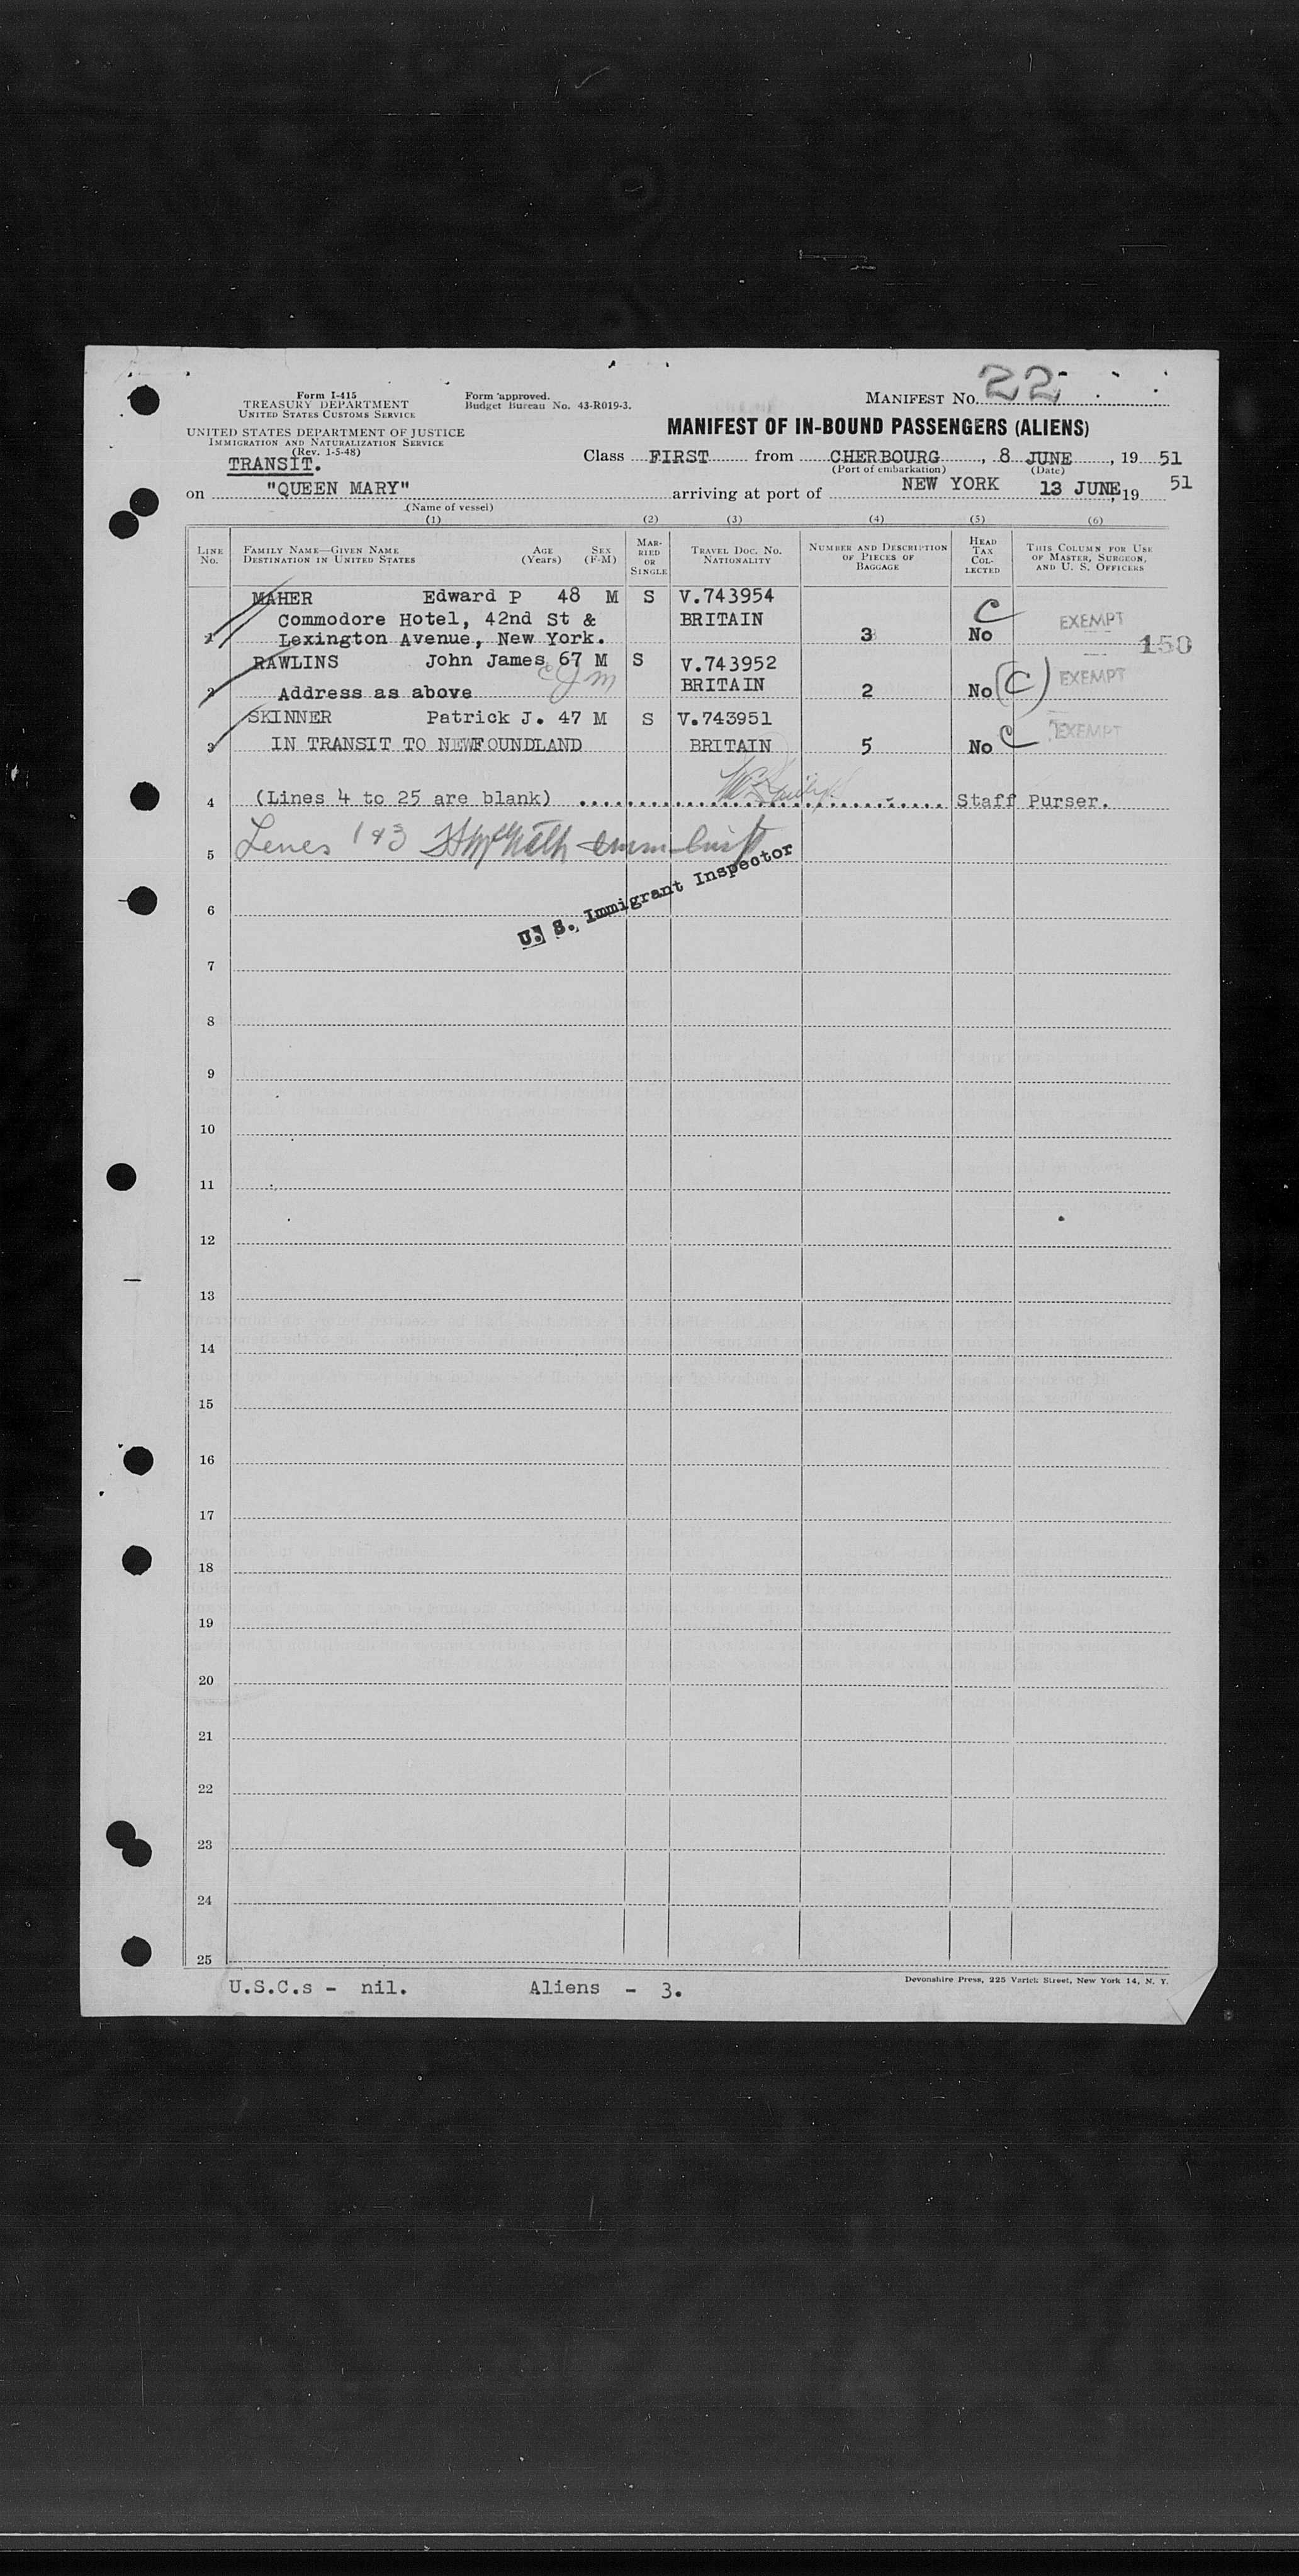 Form I-415
TREASURY DEPARTMENT
UNITED STATES CUSTOMS SERVICE
UNITED STATES DEPARTMENT OF JUSTICE
IMMIGRATION AND NATURALIZATION SERVICE
(Rev. 1-5-48)
Form approved.
Budget Bureau No. 43-R019-3.
MANIFEST No. 22
MANIFEST OF IN-BOUND PASSENGERS (ALIENS)
TRANSIT.
Class FIRST from CHERBOURG, 8 JUNE, 1951
(Port of embarkation) (Date)
on "QUEEN MARY" arriving at port of NEW YORK 13 JUNE, 19 51
(Name of vessel)
(1) (2) (3) (4) (5) (6)
LINE No. FAMILY NAME—GIVEN NAME DESTINATION IN UNITED STATES AGE (Years) SEX (F-M) MARRIED OR SINGLE TRAVEL DOC. NO. NATIONALITY NUMBER AND DESCRIPTION OF PIECES OF BAGGAGE HEAD TAX COLLECTED THIS COLUMN FOR USE OF MASTER, SURGEON, AND U. S. OFFICERS
MAHER Edward P 48 M S V.743954
Commodore Hotel, 42nd St & BRITAIN C EXEMPT
1 Lexington Avenue, New York. 3 No 150
RAWLINS John James 67 M S V.743952
2 Address as above BRITAIN 2 No (C) EXEMPT
SKINNER Patrick J. 47 M S V.743951
3 IN TRANSIT TO NEWFOUNDLAND BRITAIN 5 No C EXEMPT
4 (Lines 4 to 25 are blank) Staff Purser.
5 Lines 1 & 3
U. S. Immigrant Inspector
6
7
8
9
10
11
12
13
14
15
16
17
18
19
20
21
22
23
24
25
U.S.C.s - nil. Aliens - 3.
Devonshire Press, 225 Varick Street, New York 14, N. Y.